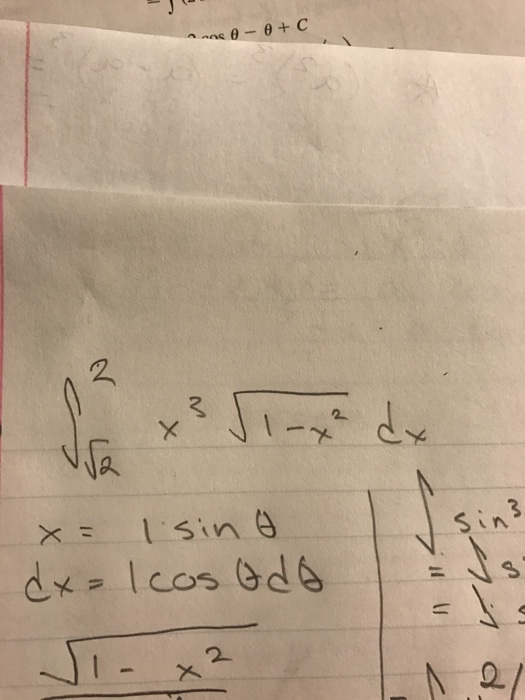 cos θ − θ + C
∫_{√2}^{2} x³ √(1-x²) dx
x = 1 sin θ
dx = 1 cos θ dθ
√(1 - x²)
∫ sin³
= ∫ s
= ∫ s